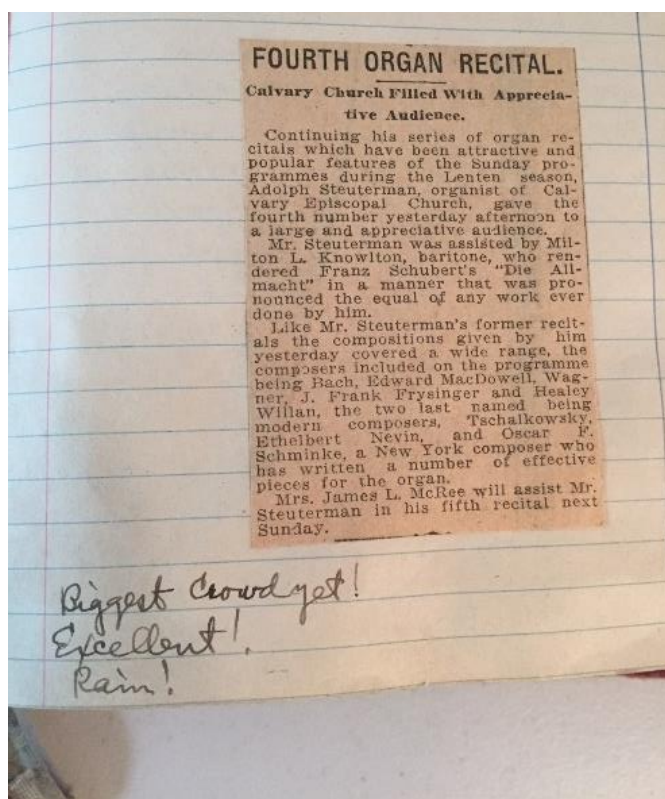 FOURTH ORGAN RECITAL.
Calvary Church Filled With Apprecia-
tive Audience.
Continuing his series of organ re-
citals which have been attractive and
popular features of the Sunday pro-
grammes during the Lenten season,
Adolph Steuterman, organist of Cal-
vary Episcopal Church, gave the
fourth number yesterday afternoon to
a large and appreciative audience.
Mr. Steuterman was assisted by Mil-
ton L. Knowlton, baritone, who ren-
dered Franz Schubert's "Die All-
macht" in a manner that was pro-
nounced the equal of any work ever
done by him.
Like Mr. Steuterman's former recit-
als the compositions given by him
yesterday covered a wide range, the
composers included on the programme
being Bach, Edward MacDowell, Wag-
ner, J. Frank Frysinger and Healey
Willan, the two last named being
modern composers, Tschaikowsky,
Ethelbert Nevin, and Oscar F.
Schminke, a New York composer who
has written a number of effective
pieces for the organ.
Mrs. James L. McRee will assist Mr.
Steuterman in his fifth recital next
Sunday.
Biggest Crowd yet!
Excellent!
Rain!